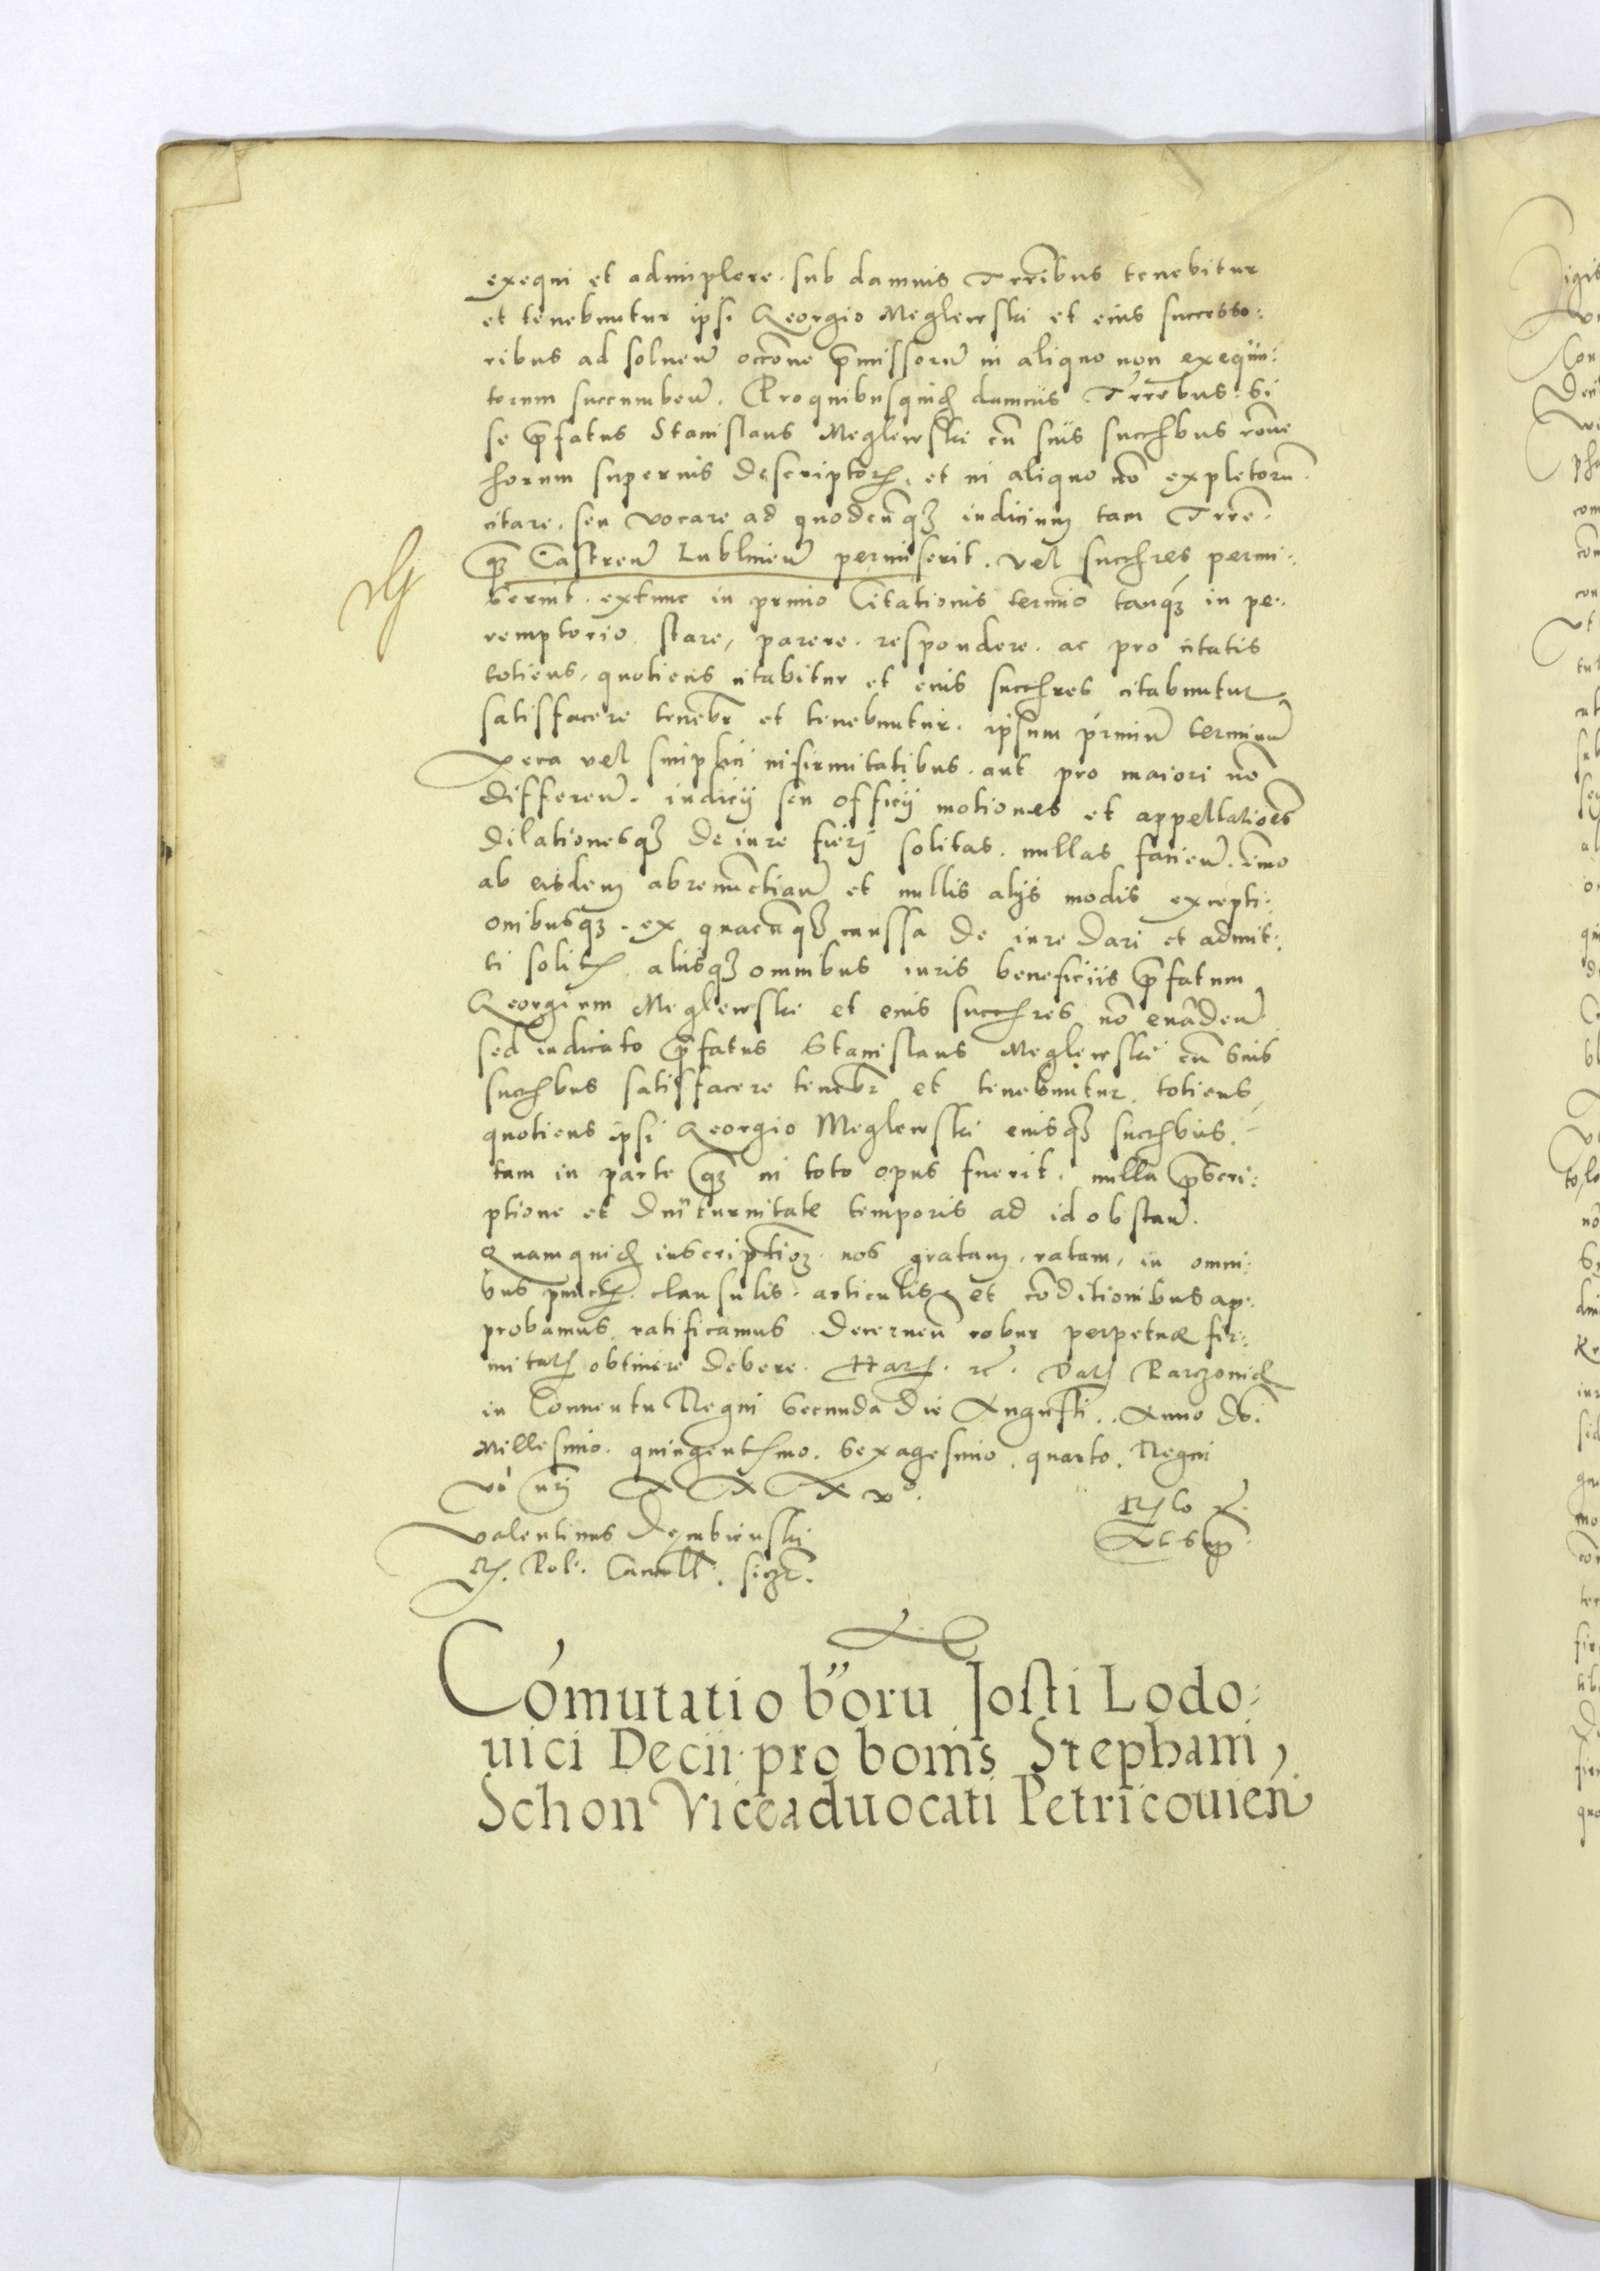 exequi et adimplere. sub damnis Trrībus tenebitur
et tenebuntur ipsi Georgio Meglewski et eius successo:
ribus ad solueñ occōne p̄missorū in aliquo non exequu:
torum succumbeñ. Pro quibusquid damnis Trrēbus. Si
se p̄fatus Stanislaus Meglewski cū suis succ̄bus rōne
horum superius descriptor, et in aliquo nō expletorū
citare, seu vocare ad quodcūq3 iudicium tam Trrē.
q3 Castreñ Lublineñ permiserit. vel succres permi:
serint. extunc in primo Citationis termīo tanq3 in pe:
remptorio stare, parere. respondere. ac pro citatis
totiens, quotiens citabitur et eius succres citabuntur
satisfacere tenebr̄ et tenebuntur. ipsum primū terminū
vera vel simplici infirmitatibus. aut pro maiori nō
differeñ. iudicij seu officij motiones et appellatiōes
dilationesq3 de iure fieri solitas. nullas facieñ. īmo
ab eisdem abrenūctiañ et nullis alijs modis excepti:
onibusq3. ex quacūq3 caussa de iure dari et admit:
ti solit aliisq3 omnibus iuris beneficiis p̄fatum
Georgium Meglewski et eius succres nō euadeñ
sed iudicato p̄fatus Stanislaus Meglewski cū suis
succ̄bus satisfacere tenebr̄ et tenebuntur. totiens
quotiens ipsi Georgio Meglewski eiusq3 succ̄bus.
tam in parte q3 in toto opus fuerit. nulla p̄scri:
ptione et diuturnitate temporis ad id obstañ.
Quamquid inscriptiōe nos gratam, ratam, in omni:
bus punct. clausulis. articulis et cōditionibus ap:
probamus ratificamus. decerneñ robur perpetuæ fir:
mitat obtinere debere. Har. rc̄. Dat Parczoui
in Conuentu Regni secunda die Augusti. Anno dn̄i
Millesimo. quingentmo. sexagesimo. quarto. Regni
vō nri XXXvº.
Valentinus Dembienski
R. Pol. Cancell. ss.
Ut sup̄.
Cōmutatio bōoru Josti Lodo:
uici Decii pro bonis Stephani
Schon Viceaduocati Petricouień